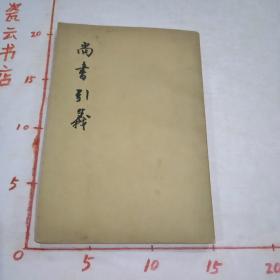 尚书引義
瓷云书店
20
15
10
5
0
5
10
15
20